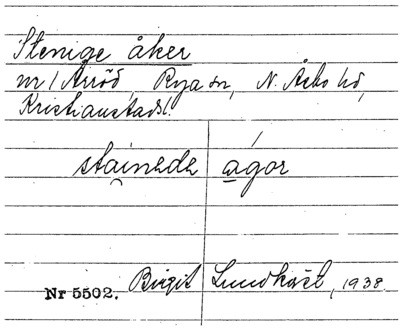 Stenige åker
nr 1 Arröd, Rya sn, N. Åsbo hd,
Kristianstads l.
stai̯nede a̲gor
Nr 5502. Birgit Lundkvist, 1938.